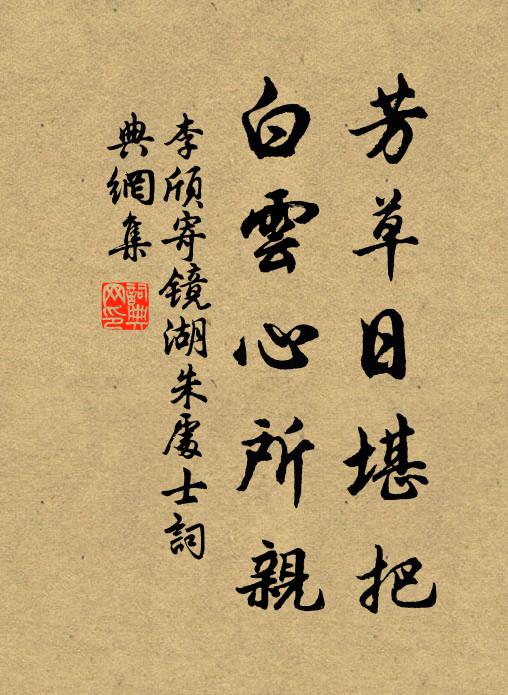 芳草日堪把
白雲心所親
李頎寄镜湖朱處士詞
典網集
詞典
网印